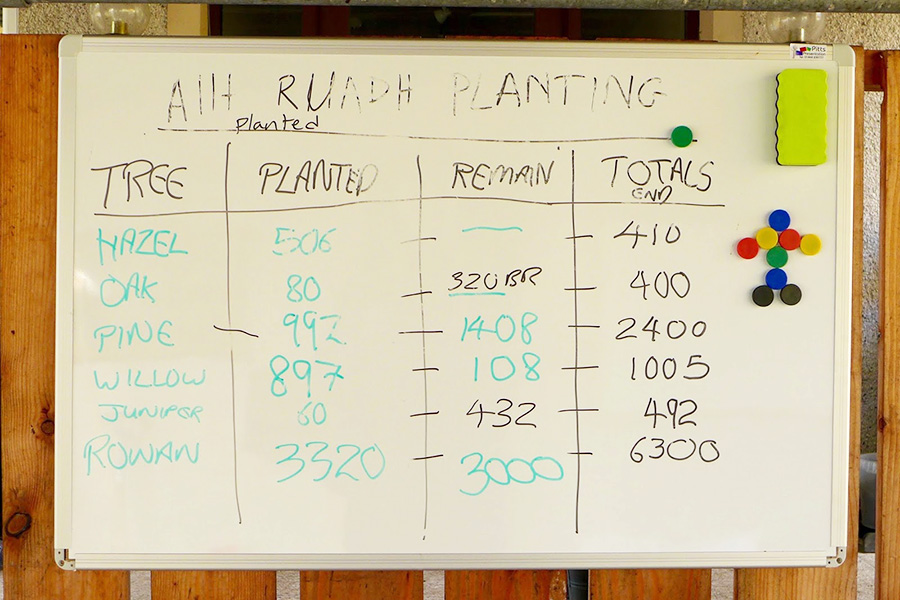 AIH RUADH PLANTING
planted
TREE PLANTED REMAIN TOTALS END
HAZEL 506 — — 410
OAK 80 — 320 BR 400
PINE — 992 — 1408 — 2400
WILLOW 897 — 108 — 1005
JUNIPER 60 — 432 — 492
ROWAN 3320 — 3000 — 6300
Pitts